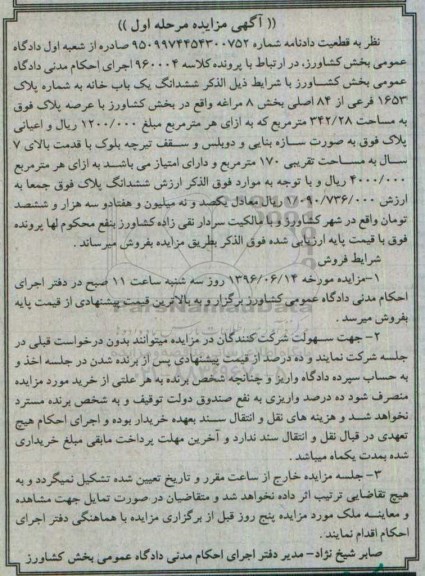 (( آگهی مزایده مرحله اول ))
نظر به قطعیت دادنامه شماره ۹۵۰۹۹۷۴۴۵۴۳۰۰۷۵۲ صادره از شعبه اول دادگاه
عمومی بخش کشاورز، در ارتباط با پرونده کلاسه ۹۶۰۰۰۴ اجرای احکام مدنی دادگاه
عمومی بخش کشاورز با شرایط ذیل الذکر ششدانگ یک باب خانه به شماره پلاک
۱۶۵۳ فرعی از ۸۴ اصلی بخش ۸ مراغه واقع در بخش کشاورز با عرصه پلاک فوق
به مساحت ۳۴۲/۲۸ مترمربع که به ازای هر مترمربع مبلغ ۱۲۰۰/۰۰۰ ریال و اعیانی
پلاک فوق به صورت سازه بنایی و دوبلس و سقف تیرچه بلوک با قدمت بالای ۷
سال به مساحت تقریبی ۱۷۰ مترمربع و دارای امتیاز می باشد به ازای هر مترمربع
۴۰۰۰/۰۰۰ ریال و با توجه به موارد فوق الذکر ارزش ششدانگ پلاک فوق جمعا به
ارزش ۱/۰۹۰/۷۳۶/۰۰۰ ریال معادل یکصد و نه میلیون و هفتادو سه هزار و ششصد
تومان واقع در شهر کشاورز و با مالکیت سردار نقی زاده کشاورز بنفع محکوم لها پرونده
فوق با قیمت پایه ارزیابی شده فوق الذکر بطریق مزایده بفروش میرساند .
شرایط فروش :
۱-مزایده مورخه ۱۳۹۶/۰۶/۱۴ روز سه شنبه ساعت ۱۱ صبح در دفتر اجرای
احکام مدنی دادگاه عمومی کشاورز برگزار و به بالاترین قیمت پیشنهادی از قیمت پایه
بفروش میرسد .
۲- جهت سهولت شرکت کنندگان در مزایده میتوانند بدون درخواست قبلی در
جلسه شرکت نمایند و ده درصد از قیمت پیشنهادی پس از برنده شدن در جلسه اخذ و
به حساب سپرده دادگاه واریز و چنانچه شخص برنده به هر علتی از خرید مورد مزایده
منصرف شود ده درصد واریزی به نفع صندوق دولت توقیف و به شخص برنده مسترد
نخواهد شد و هزینه های نقل و انتقال سند بعهده خریدار بوده و اجرای احکام هیچ
تعهدی در قبال نقل و انتقال سند ندارد و آخرین مهلت پرداخت مابقی مبلغ خریداری
شده بمدت یکماه میباشد .
۳- جلسه مزایده خارج از ساعت مقرر و تاریخ تعیین شده تشکیل نمیگردد و به
هیچ تقاضایی ترتیب اثر داده نخواهد شد و متقاضیان در صورت تمایل جهت مشاهده
و معاینه ملک مورد مزایده پنج روز قبل از برگزاری مزایده با هماهنگی دفتر اجرای
احکام اقدام نمایند .
صابر شیخ نژاد- مدیر دفتر اجرای احکام مدنی دادگاه عمومی بخش کشاورز